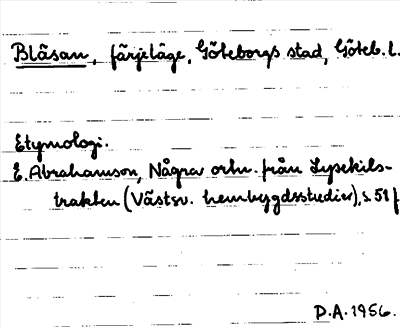 Blåsan, färjeläge, Göteborgs stad, Göteb. l.
Etymologi.
E. Abrahamson, Några ortn. från Lysekils-
trakten (Västsv. hembygdsstudier), s. 51 f
D.A. 1956.